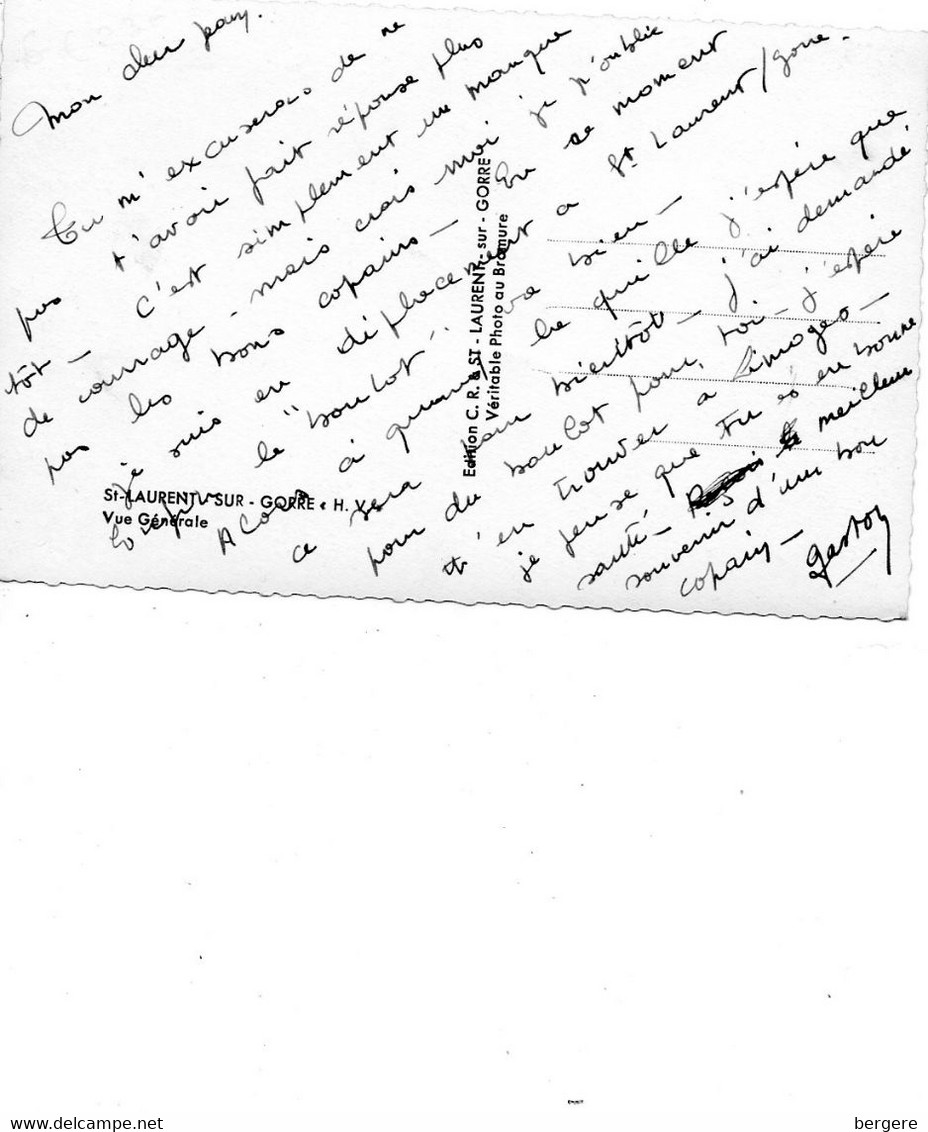 Mon cher
Tu m'excuseras de ne
pas t'avoir fait réponse plus
tôt - c'est simplement un manque
de courage - mais crois moi je n'oublie
pas les bons copains - En se moment
je suis en déplacement a St Laurent/Gorre.
le "boulot" va bien -
Alors à quand la quille j'espère que
ce sera pour bientôt - j'ai demandé
pour du boulot pour toi - j'espère
t'en trouver a Limoges -
je pense que tu es en bonne
santé - meilleur
souvenir d'un bon
copain - Gaston
St-LAURENT-SUR-GORRE « H. V. »
Vue Générale
Edition C. R. & ST - LAURENT - sur - GORRE
Véritable Photo au Bromure
bergere